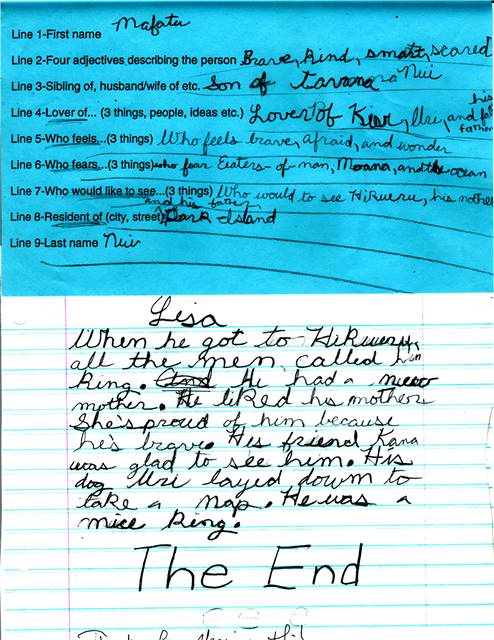 Line 1-First name Mafatu
Line 2-Four adjectives describing the person Brave, Kind, smatt, scared
Line 3-Sibling of, husband/wife of etc. Son of Tavana Nui
Line 4-Lover of... (3 things, people, ideas etc.) Lover of Kivi, Uri, and his father
Line 5-Who feels...(3 things) Who feels brave, afraid, and wonder
Line 6-Who fears...(3 things) who fear Eaters-of-man, Moana, and the ocean
Line 7-Who would like to see...(3 things) Who would to see Hikueru, his mother
and his father
Line 8-Resident of (city, street) Dark Island
Line 9-Last name Nui
Lisa
When he got to Hikueru,
all the men called him
King. And He had a
mother. He liked his mother.
She's proud of him because
he's brave. His friend Kana
was glad to see him. His
dog Uri layed down to
take a nap. He was a
nice King.
The End